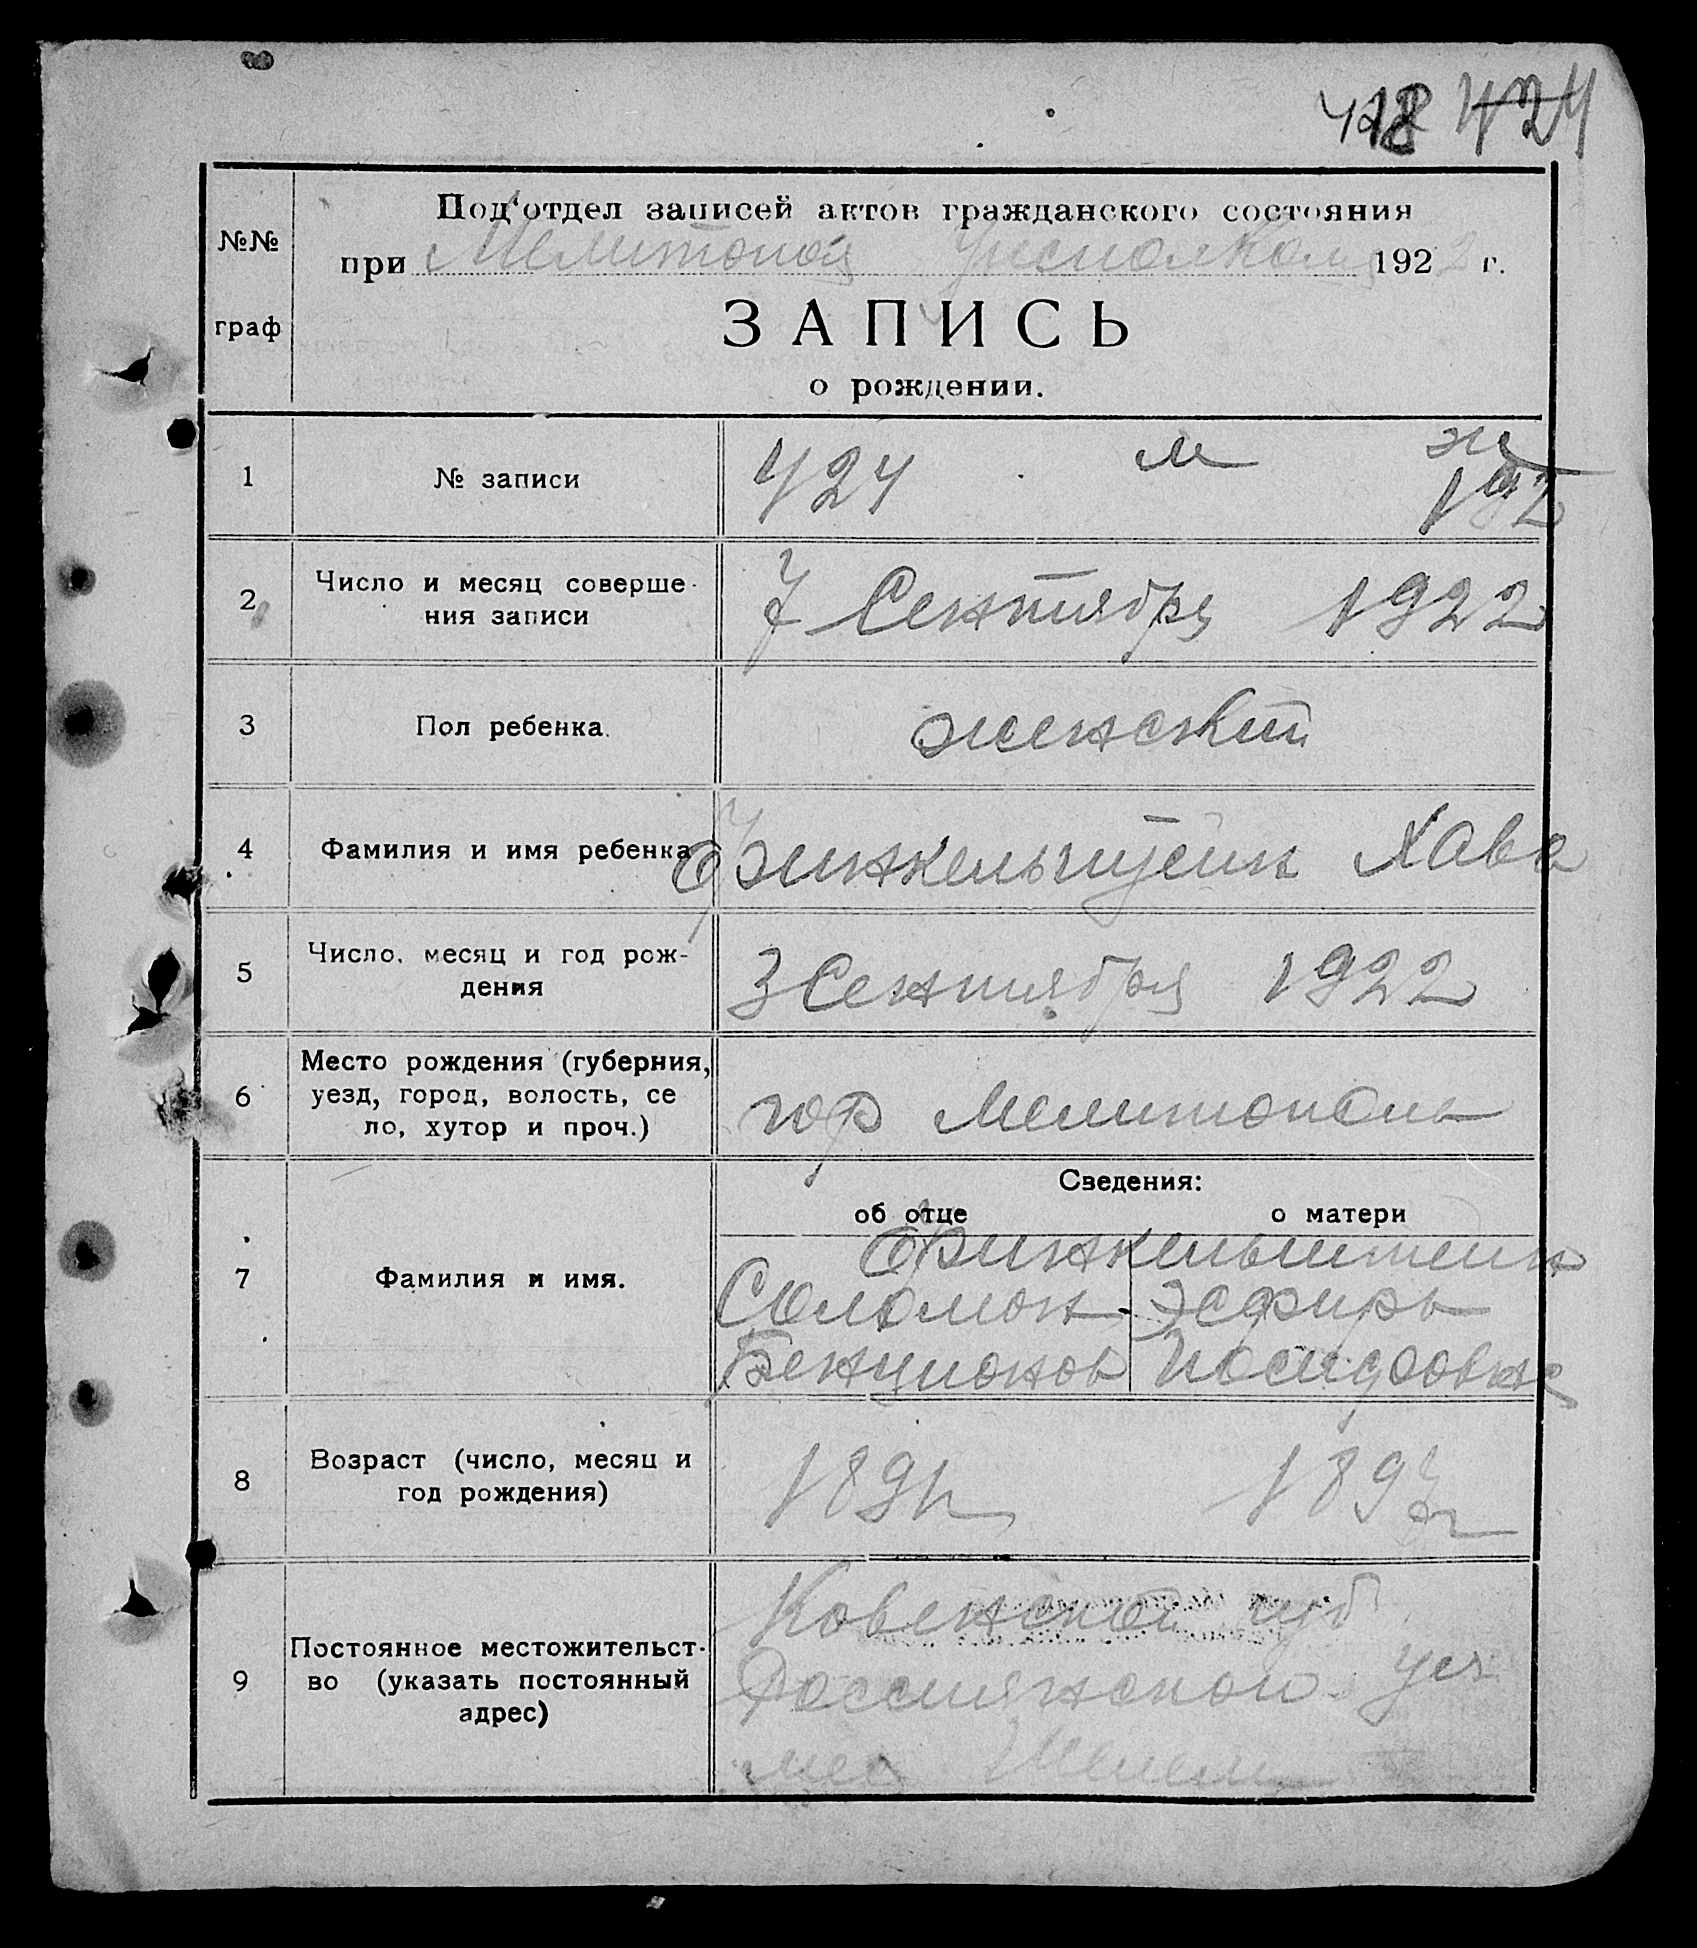 424
Под'отдел записей актов гражданского состояния
№№ при Мелитопол Уисполкоме 1922 г.
граф ЗАПИСЬ
о рождении.
м ж
1 № записи 424 192
2 Число и месяц соверше- 7 Сентября 1922
ния записи
3 Пол ребенка. женский
4 Фамилия и имя ребенка Финкельштейн Хава
5 Число, месяц и год рож- 3 Сентября 1922
дения
Место рождения (губерния,
6 уезд, город, волость, се гор Мелитополь
ло, хутор и проч.)
Сведения:
об отце о матери
Финкельштейн
7 Фамилия и имя. Соломон Эсфирь
Бенционов
8 Возраст (число, месяц и 189
год рождения)
Ковенской губ
Постоянное местожительст-
9 во (указать постоянный Россиянской уез
адрес)
мес